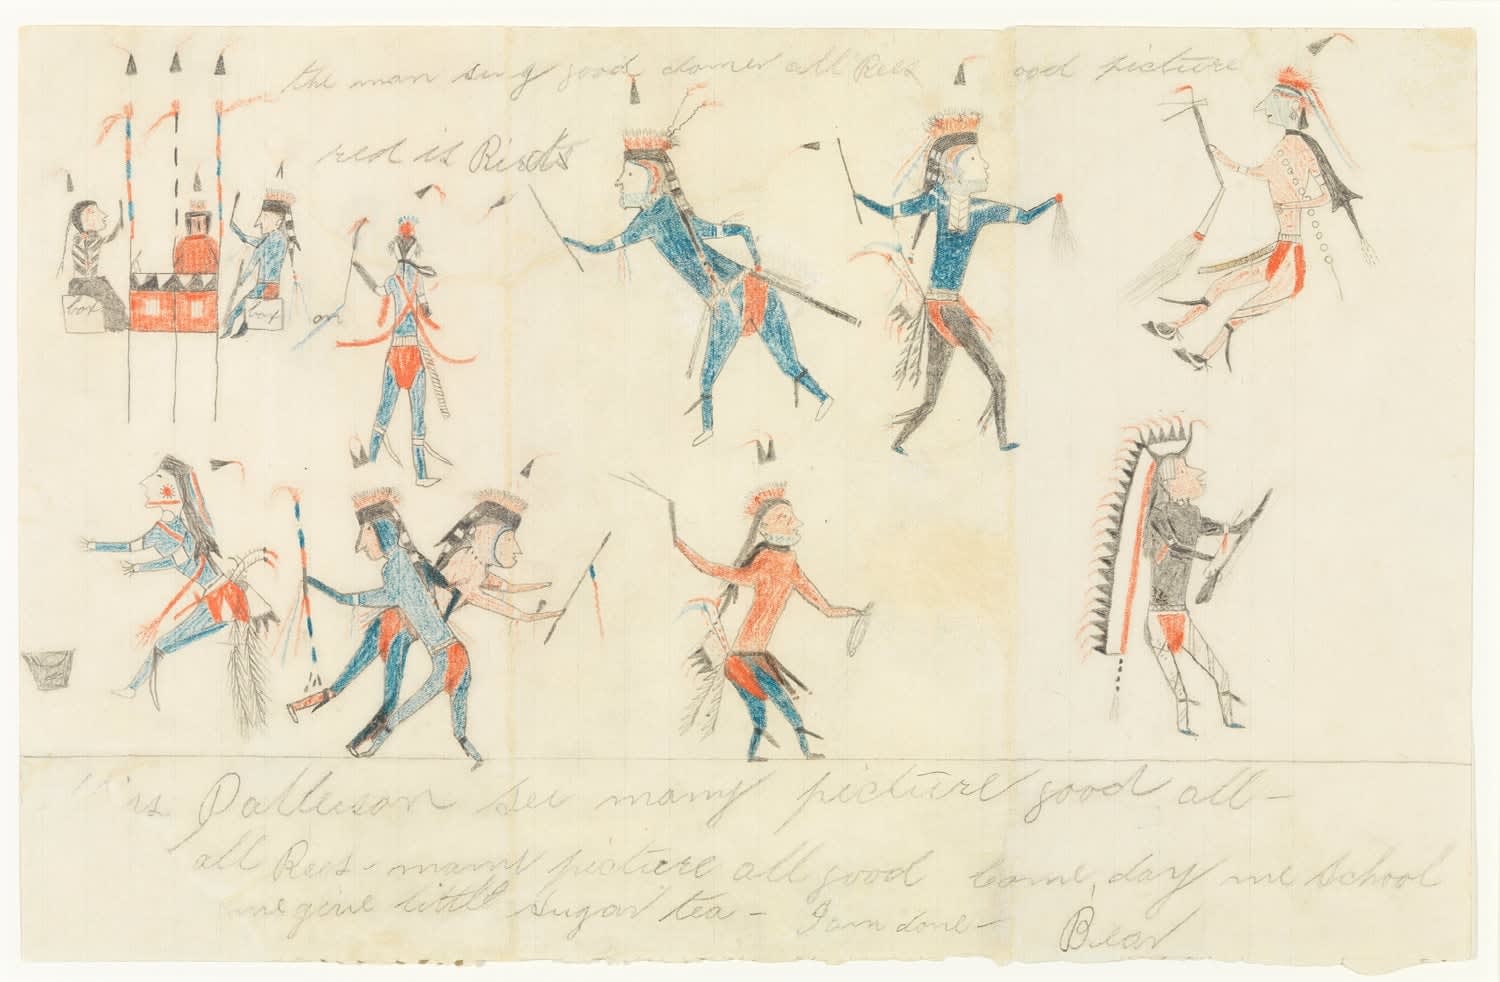 the man sing good domer all Rees ood picture
red is Riets
box
box
on
is Patterson see many picture good all -
all Rees - many picture all good Come day me School
me give little sugar tea - I am done -
Bear